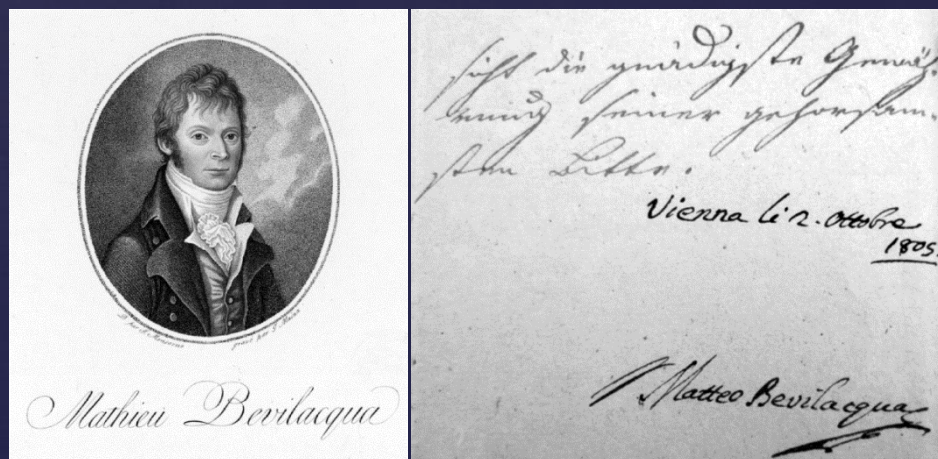 Mathieu Bevilacqua
sicht die gnädigste Gewäh-
rung seiner gehorsam-
sten Bitte.
Vienna li 2. Ottobre
1805.
Matteo Bevilacqua